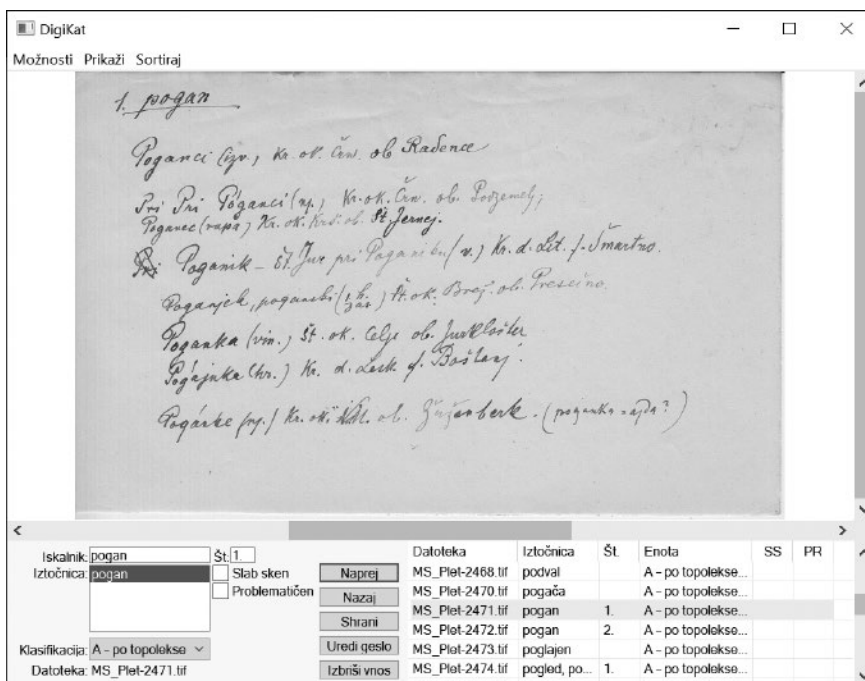 DigiKat
Možnosti Prikaži Sortiraj
1. pogan
Poganci (izv.) Kr. ok. Črn. ob Radence
Pri Pri Póganci (nj.) Kr. ok. Črn. ob. Podzemelj;
Poganec (rupa) Kr. ok. Krš. ob. Št. Jernej.
Poganik – Št. Jur pri Poganiku (v.) Kr. d. Lit. f. Šmartno.
Poganjek, poganski Št. ok. Brež. ob. Presečno.
Poganka (vin.) Št. ok. Celje ob. Jurklošter
Pogájnka (hr.) Kr. d. Lesk. f. Boštanj.
Pogánke (nj.) Kr. ok. ob. Žužemberk. (poganka = ajda?)
Iskalnik: pogan Št. 1.
Iztočnica: pogan
Slab sken
Problematičen
Klasifikacija: A – po topolekse
Datoteka: MS_Plet-2471.tif
Naprej
Nazaj
Shrani
Uredi geslo
Izbriši vnos
Datoteka Iztočnica Št. Enota SS PR
MS_Plet-2468.tif podval A – po topolekse...
MS_Plet-2470.tif pogača A – po topolekse...
MS_Plet-2471.tif pogan 1. A – po topolekse...
MS_Plet-2472.tif pogan 2. A – po topolekse...
MS_Plet-2473.tif poglajen A – po topolekse...
MS_Plet-2474.tif pogled, po... 1. A – po topolekse...